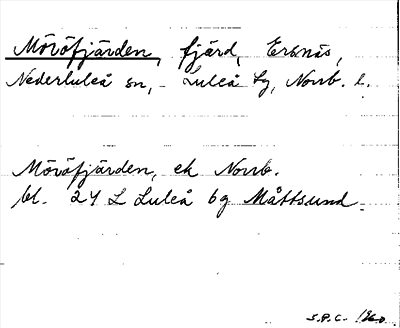 Mövöfjärden, fjärd, Ersnäs,
Nederluleå sn, Luleå kg, Norrb. l.
Mövöfjärden, ek Norrb.
bl. 24 L Luleå 6g Måttsund.
S.P.C. 1960